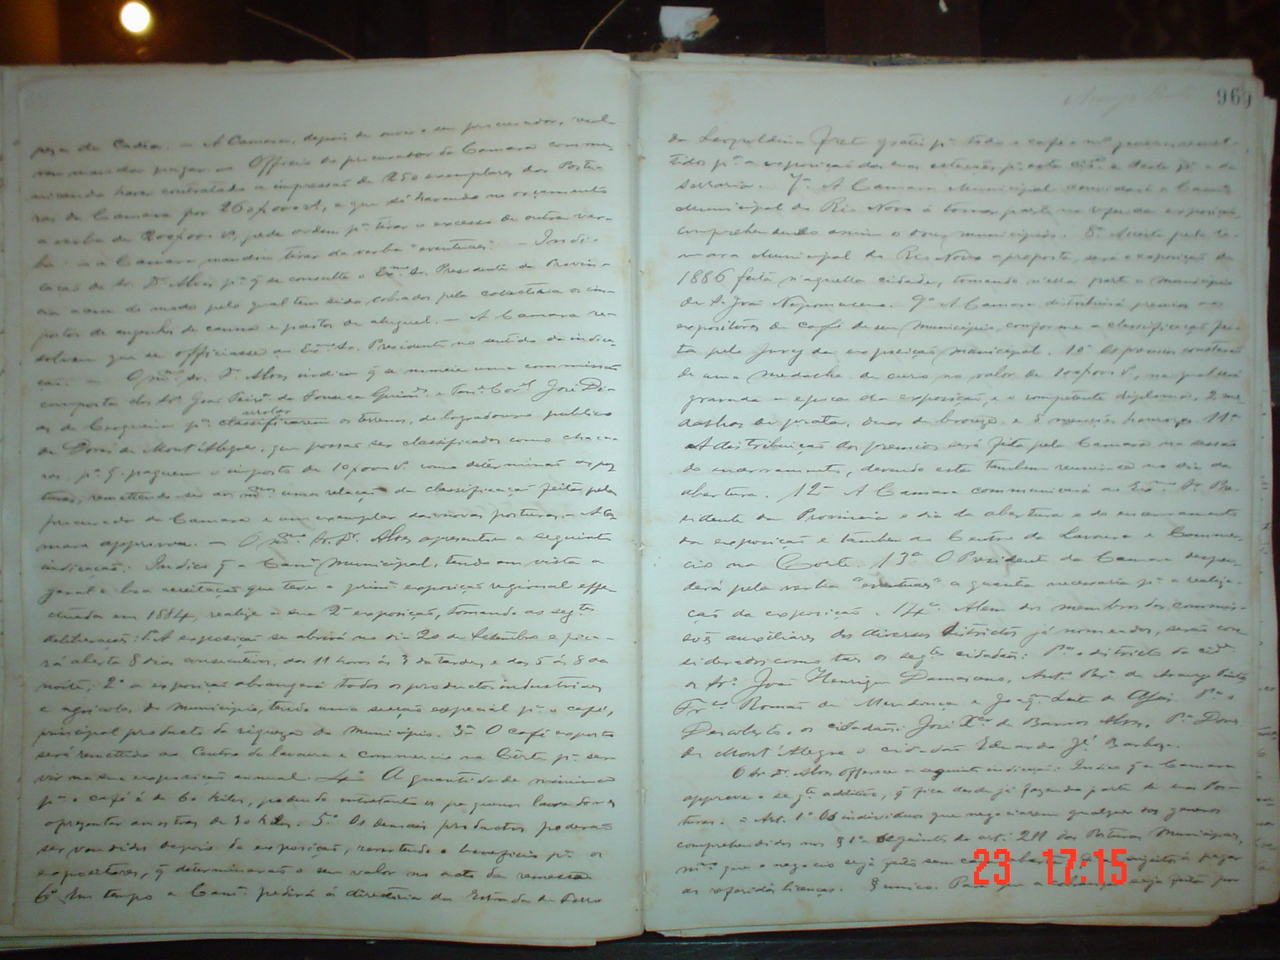 peza da Cadêa. — A Camara, depois de ouvir o seu procurador, resol-
veu mandar pagar. — Officio do procurador da Camara commu-
nicando haver contratado a impressão de 250 exemplares das Postu-
ras da Camara por 260$000 rs, e que só havendo no orçamento
a verba de 200$000 rs, pede ordem pª tirar o excesso de outra ver-
ba — a Camara mandou tirar da verba "eventuaes". — Indi-
cação do Sr. Dr. Alves pª q se consulte o Exmo. Sr. Presidente da Provin-
cia acerca do modo pelo qual tem sido cobrados pela collectoria os im-
postos de engenho de canna e pastos de aluguel. — A Camara re-
solveu que se officiasse ao Exmo. Sr. Presidente no sentido da indica-
ção. — O mmo. Sr. Dr. Alves indica q se nomeie uma commissão
composta dos Srs. João da Fonseca e Tene. Corel. José Di-
as de Cerqueira pª classificarem os terrenos, de logradouro publico
arrolar
de Dores do Mont'Alegre, que possam ser classificados como chaca-
ras, pª q paguem o imposto de 10$000 rs como determinão as pos-
turas, remettendo-se aos mmos uma relação da classificação feita pelo
procurador da Camara e um exemplar das novas posturas. — A Ca-
mara approva. — O mmo. Sr. Dr. Alves apresentou a seguinte
indicação: Indico q a Camª Municipal, tendo em vista a
geral e boa aceitação que teve a primª exposição regional effe-
ctuada em 1884, realize a sua 2ª exposição, tomando as segtes
deliberações: 1ª A exposição se abrirá no dia 20 de Setembro e fica-
rá aberta 8 dias consecutivos, das 11 horas ás 3 da tarde, e das 5 ás 8 da
noite; 2ª a exposição abrangerá todos os productos industriaes
e agricolas do municipio, tendo uma secção especial pª o café,
principal producto da riqueza do municipio. 3ª O café exposto
será remettido ao Centro da lavoura e commercio na Côrte pª ser-
vir na sua exposição annual. 4ª A quantidade minima
pª o café é de 60 kilos, podendo entretanto os pequenos lavradores
apresentar amostras de 30 kilos. 5ª Os demais productos poderão
ser vendidos depois da exposição, revertendo o beneficio pª os
expositores, q determinarão o seu valor no acto da remessa
6ª Em tempo a Camª pedirá á directoria da Estrada de Ferro
969
da Leopoldina frete gratis pª todo o café e mais generos remet-
tidos pª a exposição das suas estações pª esta cide. e desta pª a da
Serraria. 7ª A Camara Municipal convidará a Camª
Municipal do Rio Novo á tomar parte na referida exposição,
comprehendendo assim os dous municipios. 8ª Acceita pela Ca-
mara Municipal do Rio Novo a proposta, será a exposição de
1886 feita n'aquella cidade, tomando n'ella parte o municipio
de S. João Nepomuceno. 9ª A Camara distribuirá premios aos
expositores de café de seu municipio, conforme a classificação fei-
ta pelo Jury da exposição municipal. 10ª Os premios constarão
de uma medalha de ouro no valor de 100$000 rs, na qual será
gravada a epoca da exposição, e o competente diploma, 2 me-
dalhas de prata, duas de bronze, e 5 menções honrosas. 11ª
A distribuição dos premios será feita pela Camara na sessão
do encerramento, devendo esta tambem reunir-se no dia da
abertura. 12ª A Camara communicará ao Exmo. Sr. Pre-
sidente da Provincia o dia da abertura e do encerramento
da exposição e tambem ao Centro da Lavoura e Commer-
cio na Corte. 13ª O Presidente da Camara despen-
derá pela verba "eventuaes" a quantia necessaria pª a realiza-
ção da exposição. 14ª Alem dos membros das commis-
sões auxiliares dos diversos districtos já nomeados, serão con-
siderados como taes os segtes cidadãos: Pª o districto da cide
os Srs. João Henrique Damasceno, Antº. de Araujo
Frco. Romão de Mendonça e Joaqm. Leite de Pª o
Descoberto, o cidadão: José Xer. de Barros Alves. Pª Dores
do Mont'Alegre o cidadão Eduardo Jé. Barbosa.
O Sr. Dr. Alves offerece a seguinte indicação: Indico q a Camara
approve o segte additivo, q fica desde já fazendo parte de suas Pos-
turas. = Art. 1º Os individuos que negociarem qualquer dos generos
comprehendidos nos § 1º e seguintes do art. 211 das Posturas Municipaes,
mmo que o negocio seja feito sem casa aberta, são sujeitos á pagar
as referidas licenças. § unico. Para que a cobrança seja feita por
23 17:15